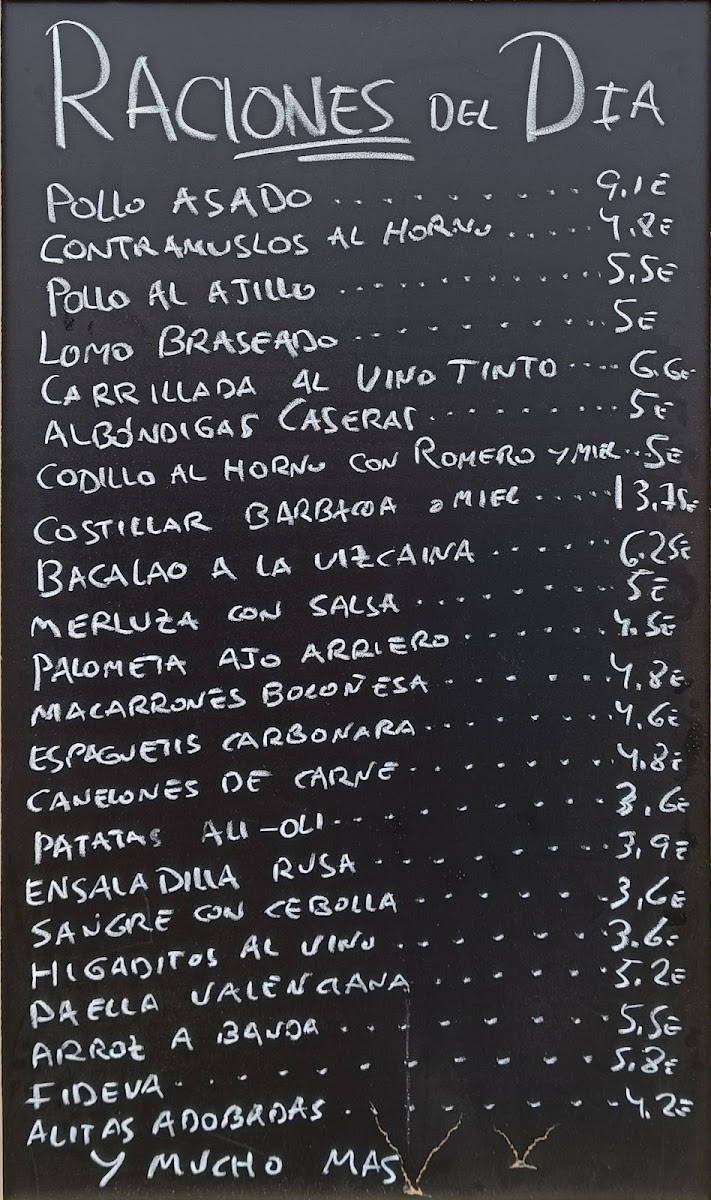 RACIONES DEL DIA
POLLO ASADO .......... 9.1€
CONTRAMUSLOS AL HORNO ..... 4.8€
POLLO AL AJILLO .............. 5.5€
LOMO BRASEADO .......... 5€
CARRILLADA AL VINO TINTO .... 6.6€
ALBÓNDIGAS CASERAS ......... 5€
CODILLO AL HORNO CON ROMERO Y MIEL .. 5€
COSTILLAR BARBACOA o MIEL ...... 13.75€
BACALAO A LA VIZCAINA ...... 6.25€
MERLUZA CON SALSA ......... 5€
PALOMETA AJO ARRIERO ....... 4.5€
MACARRONES BOLOÑESA ........ 4.8€
ESPAGUETIS CARBONARA ......... 4.6€
CANELONES DE CARNE ......... 4.8€
PATATAS ALI-OLI .......... 3,6€
ENSALADILLA RUSA ......... 3,9€
SANGRE CON CEBOLLA ........ 3,6€
HIGADITOS AL VINO ........ 3.6€
PAELLA VALENCIANA ....... 5.2€
ARROZ A BANDA ........ 5,5€
FIDEVA ............ 5.8€
ALITAS ADOBADAS ........ 4.2€
Y MUCHO MAS